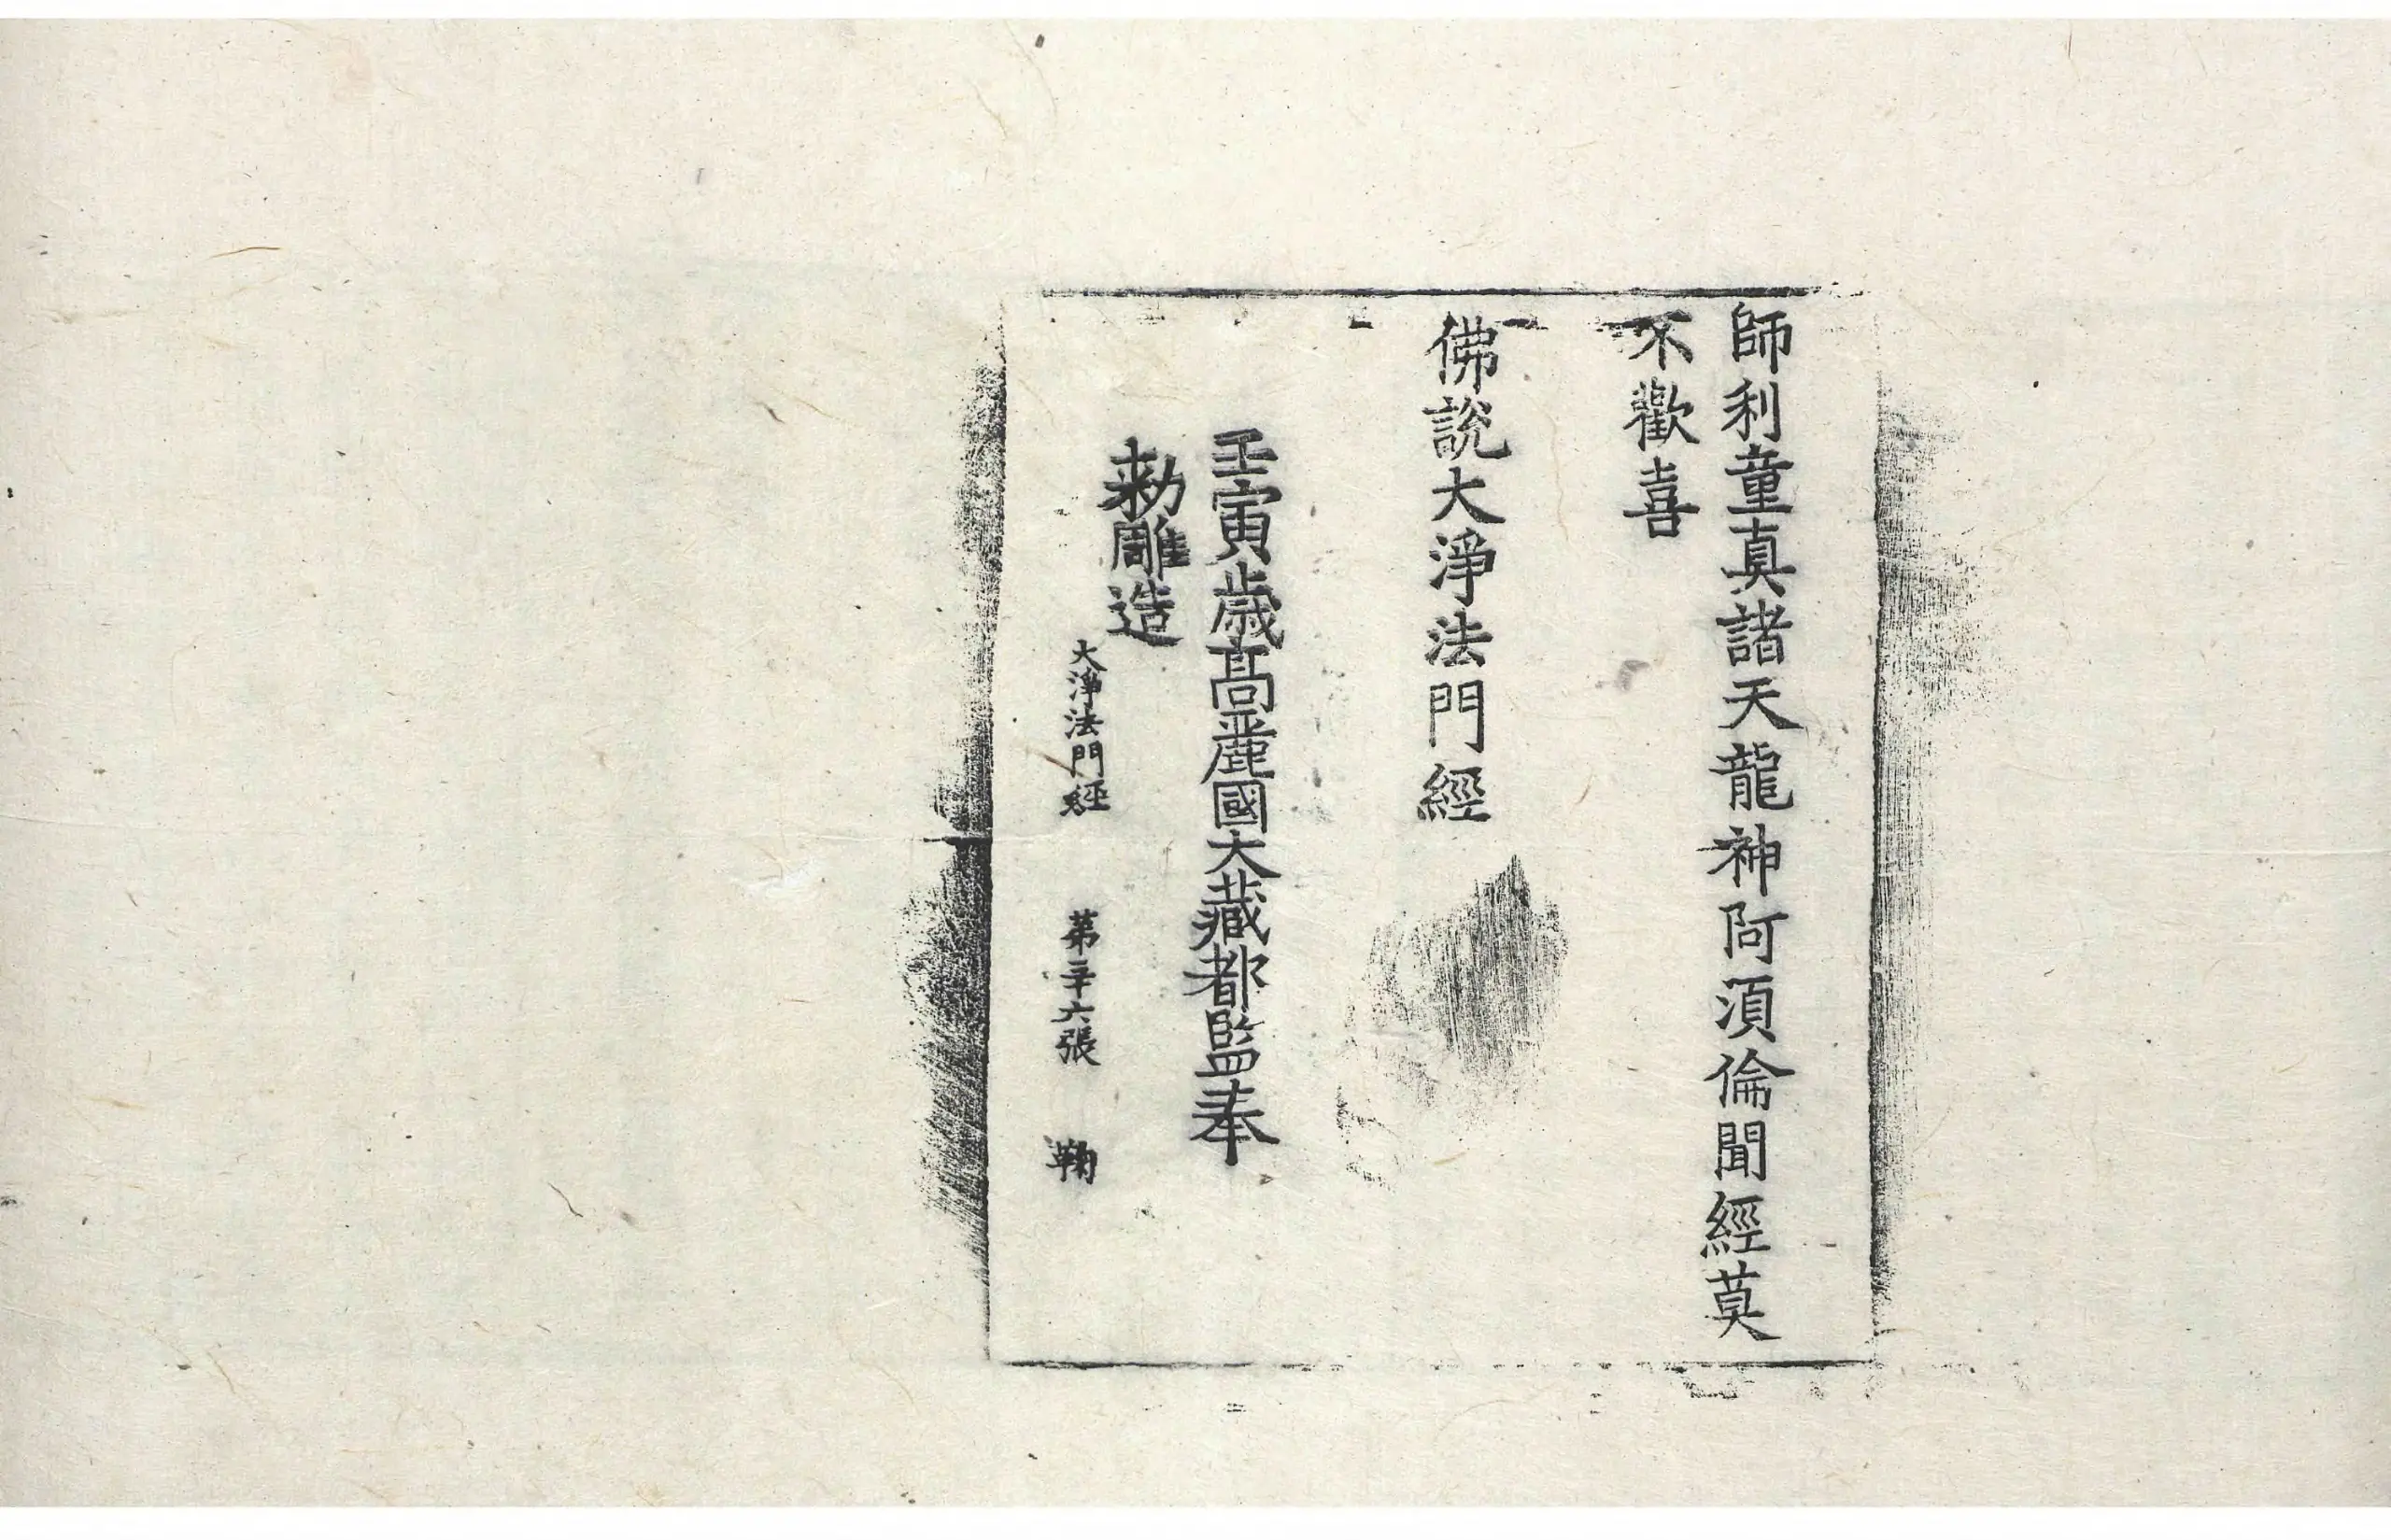 師利童真諸天龍神阿須倫聞經莫
不歡喜
佛說大淨法門經
壬寅歲高麗國大藏都監奉
勑雕造
大淨法門經 第二十六張 鞠